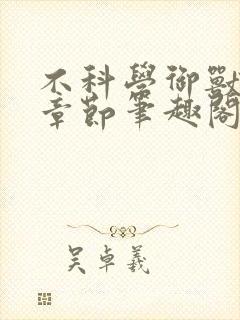 不科學御獸
章節筆趣閣
吳卓義